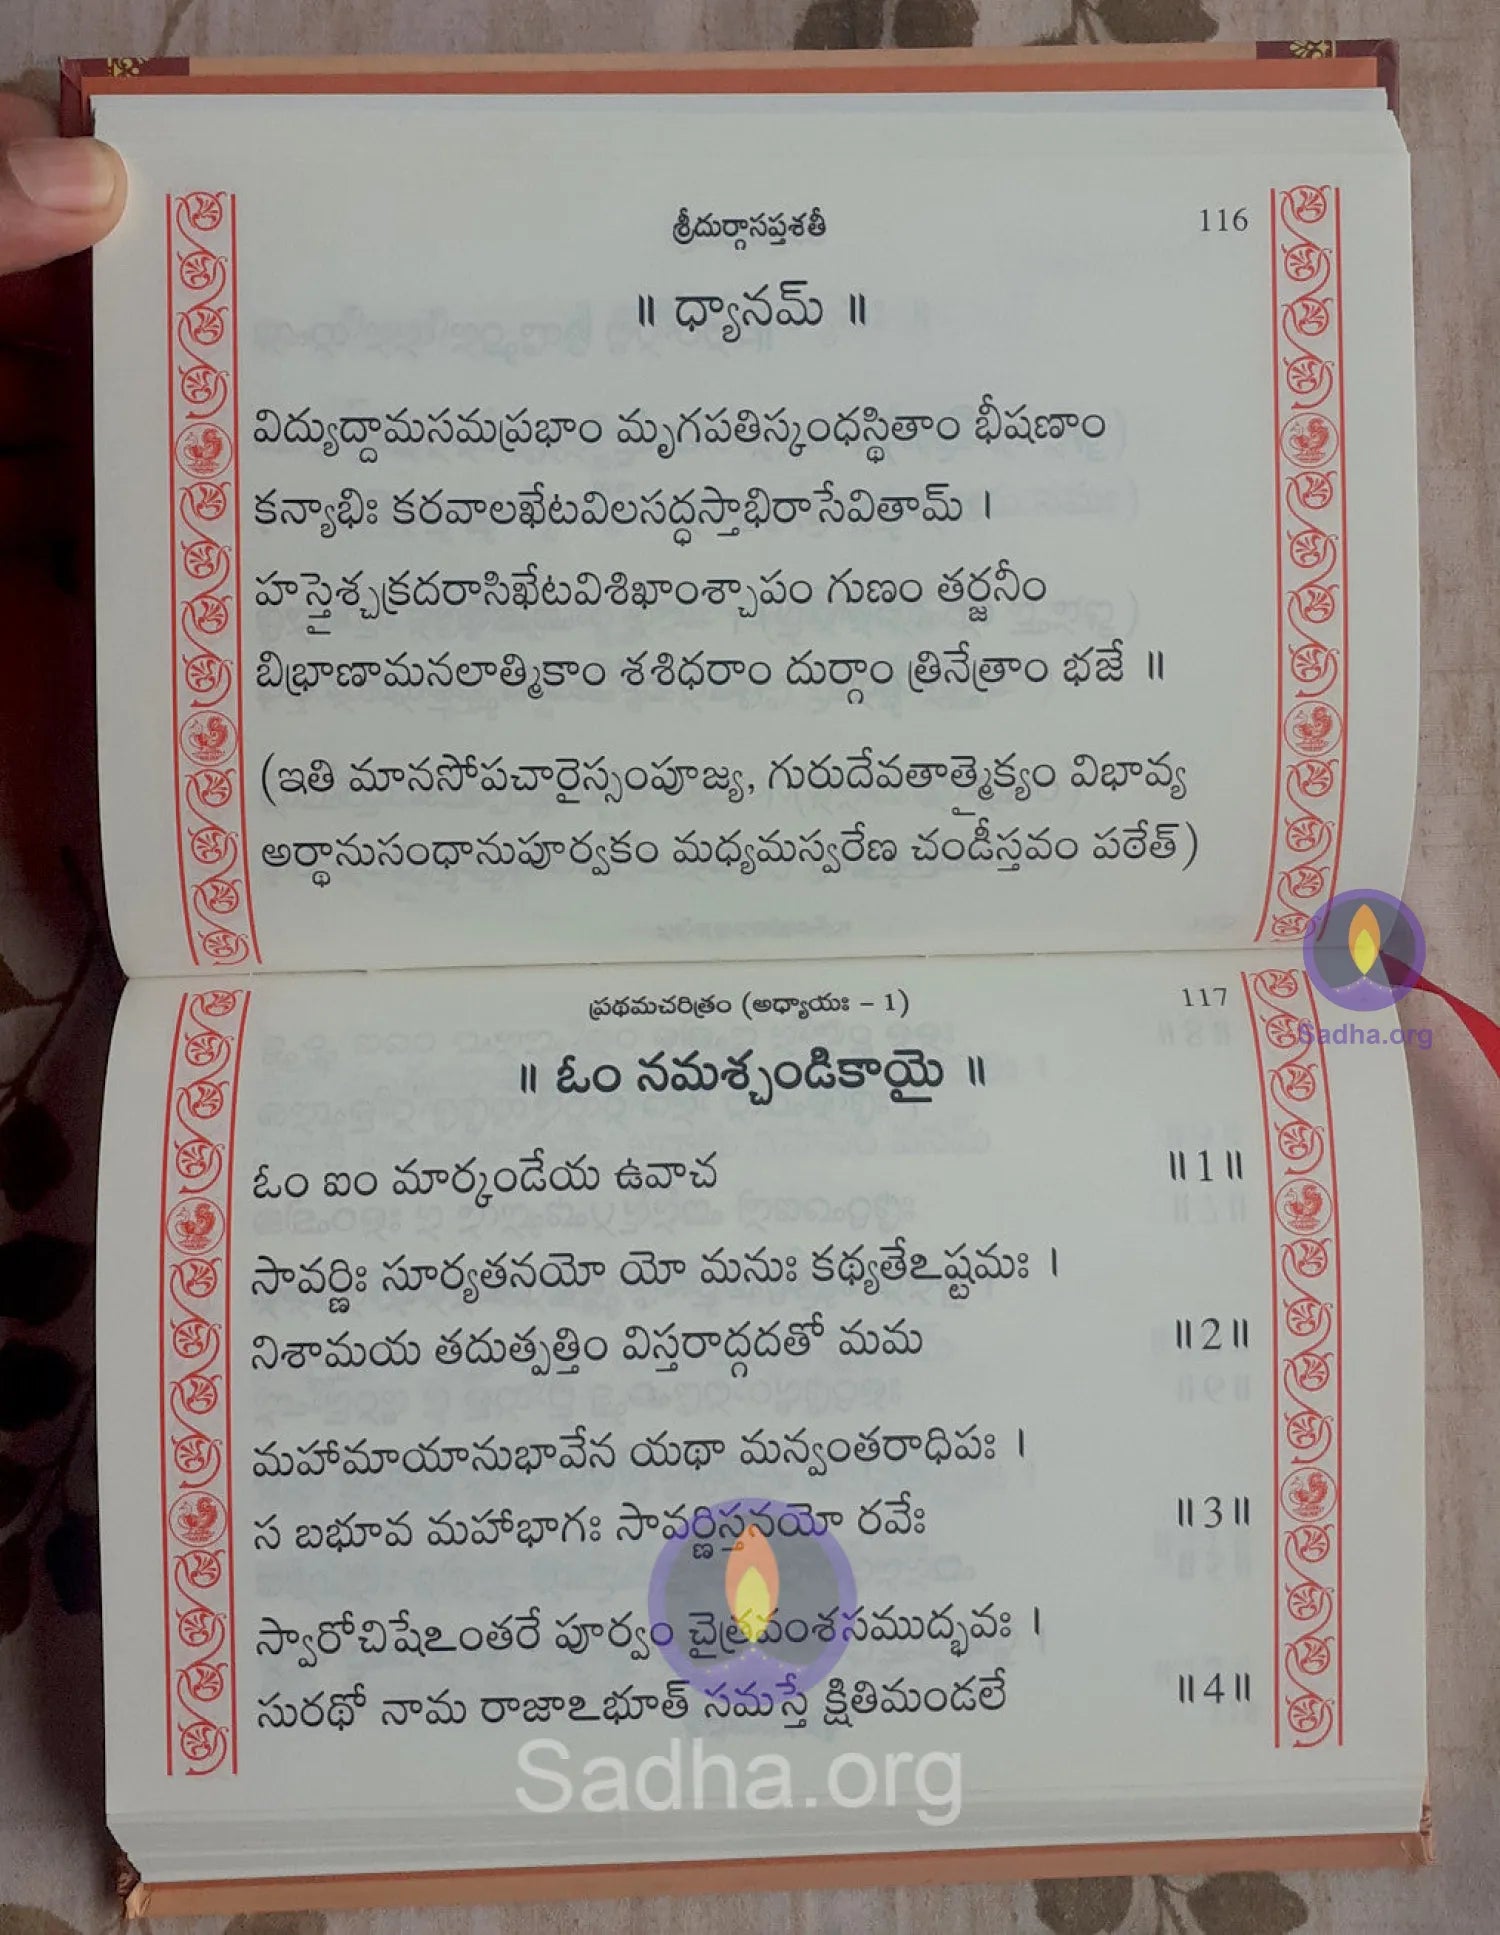 శ్రీదుర్గాసప్తశతీ 116
॥ ధ్యానమ్ ॥
విద్యుద్దామసమప్రభాం మృగపతిస్కంధస్థితాం భీషణాం
కన్యాభిః కరవాలఖేటవిలసద్ధస్తాభిరాసేవితామ్ ।
హస్తైశ్చక్రదరాసిఖేటవిశిఖాంశ్చాపం గుణం తర్జనీం
బిభ్రాణామనలాత్మికాం శశిధరాం దుర్గాం త్రినేత్రాం భజే ॥
(ఇతి మానసోపచారైస్సంపూజ్య, గురుదేవతాత్మైక్యం విభావ్య
అర్థానుసంధానుపూర్వకం మధ్యమస్వరేణ చండీస్తవం పఠేత్)
ప్రథమచరిత్రం (అధ్యాయః – 1) 117
Sadha.org
॥ ఓం నమశ్చండికాయై ॥
ఓం ఐం మార్కండేయ ఉవాచ ॥1॥
సావర్ణిః సూర్యతనయో యో మనుః కథ్యతేఽష్టమః ।
నిశామయ తదుత్పత్తిం విస్తరాద్గదతో మమ ॥2॥
మహామాయానుభావేన యథా మన్వంతరాధిపః ।
స బభూవ మహాభాగః సావర్ణిస్తనయో రవేః ॥3॥
స్వారోచిషేఽంతరే పూర్వం చైత్రవంశసముద్భవః ।
సురథో నామ రాజాఽభూత్ సమస్తే క్షితిమండలే ॥4॥
Sadha.org